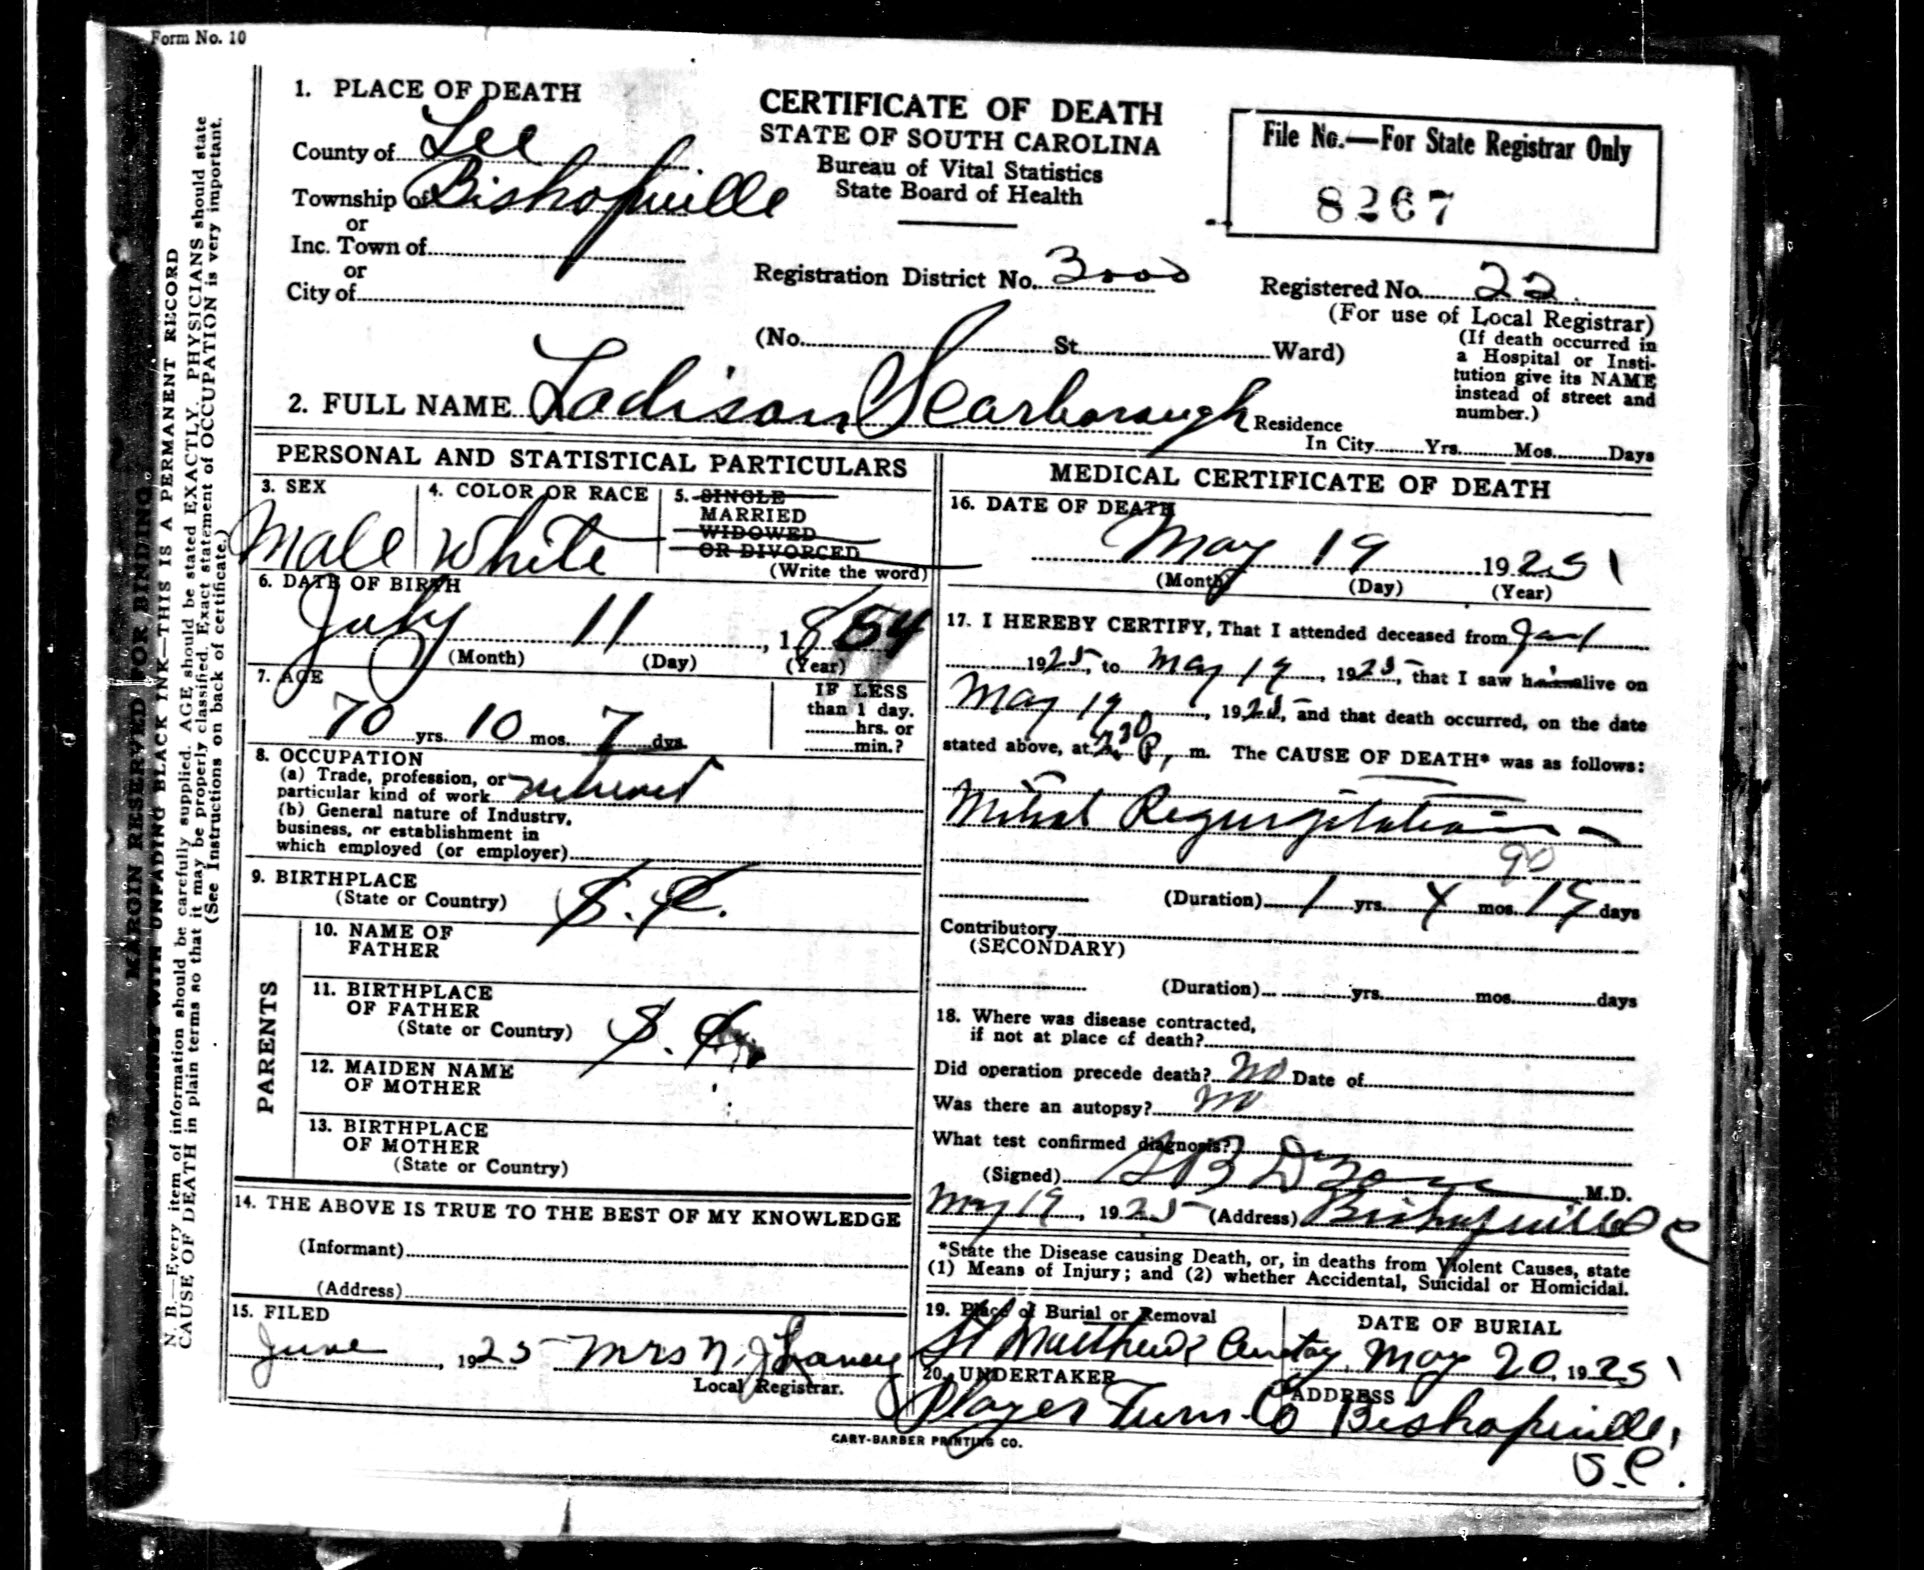 Form No. 10
1. PLACE OF DEATH
County of Lee
Township of Bishopville
or
Inc. Town of
or
City of
CERTIFICATE OF DEATH
STATE OF SOUTH CAROLINA
Bureau of Vital Statistics
State Board of Health
File No.—For State Registrar Only
8267
Registration District No. 3000
Registered No. 22
(For use of Local Registrar)
(No. St. Ward)
(If death occurred in
a Hospital or Insti-
tution give its NAME
instead of street and
number.)
2. FULL NAME Ladison Scarborough
Residence
In City Yrs. Mos. Days
PERSONAL AND STATISTICAL PARTICULARS
3. SEX
Male
4. COLOR OR RACE
White
5. SINGLE
MARRIED
WIDOWED
OR DIVORCED
(Write the word)
6. DATE OF BIRTH
July 11, 1854
(Month) (Day) (Year)
7. AGE
70 yrs. 10 mos. 7 dys.
IF LESS
than 1 day.
hrs. or
min.?
8. OCCUPATION
(a) Trade, profession, or
particular kind of work retired
(b) General nature of Industry,
business, or establishment in
which employed (or employer)
9. BIRTHPLACE
(State or Country) S.C.
PARENTS
10. NAME OF
FATHER
11. BIRTHPLACE
OF FATHER
(State or Country) S.C.
12. MAIDEN NAME
OF MOTHER
13. BIRTHPLACE
OF MOTHER
(State or Country)
14. THE ABOVE IS TRUE TO THE BEST OF MY KNOWLEDGE
(Informant)
(Address)
15. FILED
June, 1925 Mrs N. J.
Local Registrar.
MEDICAL CERTIFICATE OF DEATH
16. DATE OF DEATH
May 19 1925
(Month) (Day) (Year)
17. I HEREBY CERTIFY, That I attended deceased from Jan 1
1925, to May 19, 1925, that I saw him alive on
May 19, 1925, and that death occurred, on the date
stated above, at 2 30 P, m. The CAUSE OF DEATH* was as follows:
Mitral Regurgitation
90
(Duration) 1 yrs. 4 mos. 19 days
Contributory
(SECONDARY)
(Duration) yrs. mos. days
18. Where was disease contracted,
if not at place of death?
Did operation precede death? No Date of
Was there an autopsy? No
What test confirmed diagnosis?
(Signed) M.D.
May 19, 1925 (Address) Bishopville S C
*State the Disease causing Death, or, in deaths from Violent Causes, state
(1) Means of Injury; and (2) whether Accidental, Suicidal or Homicidal.
19. Place of Burial or Removal
St Matthews Cemetery
DATE OF BURIAL
May 20, 1925
20. UNDERTAKER
Player Furn. Co
ADDRESS
Bishopville,
S.C.
CARY-BARBER PRINTING CO.
MARGIN RESERVED FOR BINDING
WITH UNFADING BLACK INK—THIS IS A PERMANENT RECORD
N. B.—Every item of information should be carefully supplied. AGE should be stated EXACTLY. PHYSICIANS should state
CAUSE OF DEATH in plain terms so that it may be properly classified. Exact statement of OCCUPATION is very important.
(See Instructions on back of certificate.)